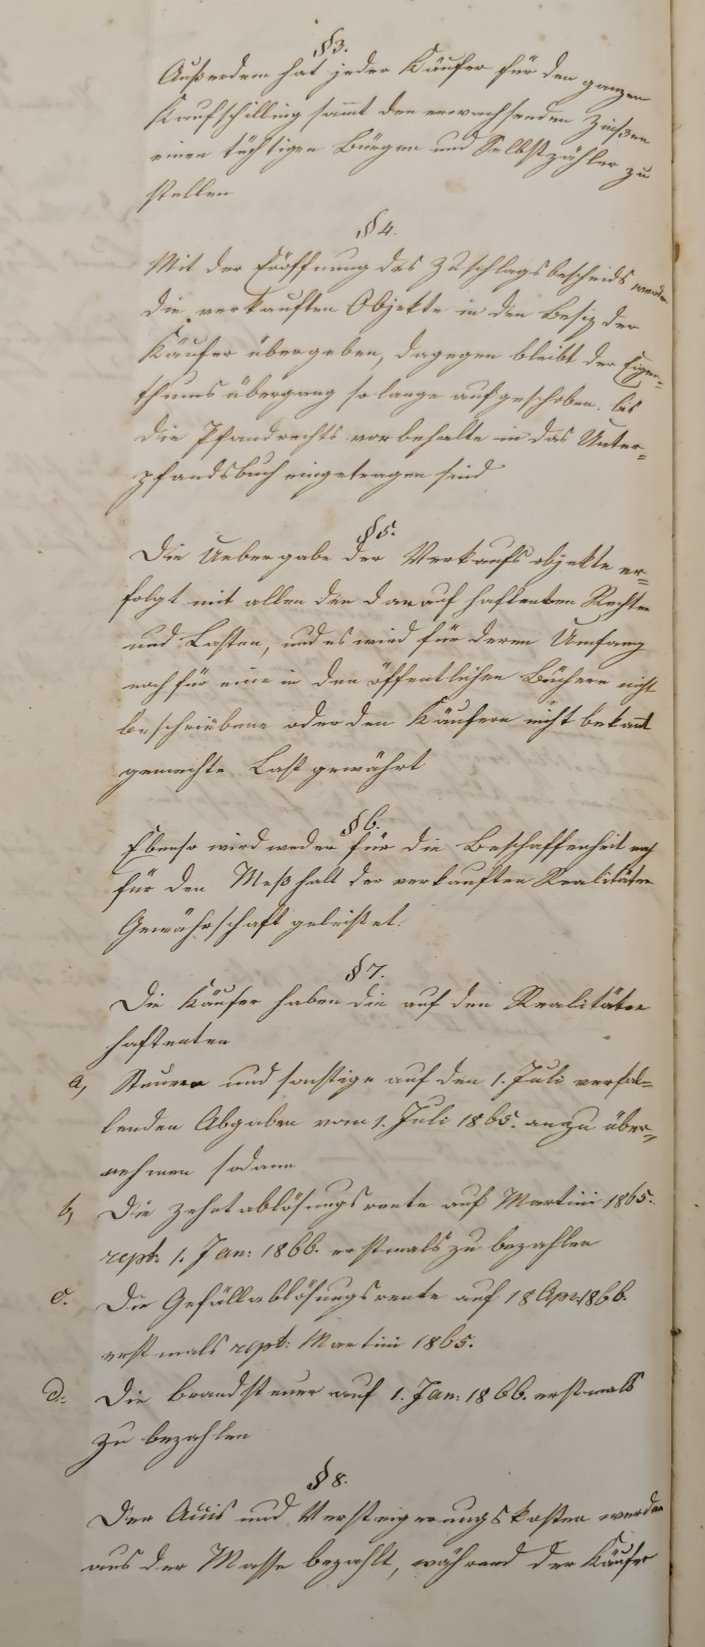 § 3.
Außerdem hat jeder Käufer für den ganzen
Kaufschilling sammt den erwachsenden Zinßen
einen tüchtigen Bürgen und Selbstzahler zu
stellen
§ 4.
Mit der Eröffnung des Zuschlagsbescheids werden
die verkauften Objekte in den Besiz der
Käufer übergeben, dagegen bleibt der Eigen=
thumsübergang so lange aufgeschoben, bis
die Pfandrechtsvorbehalte in das Unter=
pfandsbuch eingetragen sind
§ 5.
Die Uebergabe der Verkaufsobjekte er=
folgt mit allen den darauf haftenden Rechten
und Lasten, und es wird für deren Umfang
noch für eine in den öffentlichen Büchern nicht
beschriebene oder den Käufern nicht bekannt
gemachte Last gewährt
§ 6.
Ebenso wird weder für die Beschaffenheit noch
für den Meßhalt der verkauften Realitäten
Gewährschaft geleistet.
§ 7.
Die Käufer haben die auf den Realitäten
haftenten
a, Steuern und sonstige auf den 1. Juli verfal=
lenden Abgaben vom 1. Juli 1865. an zu über=
nehmen sodann
b, Die Zehntablösungsrente auf Martini 1865.
resp: 1. Jan: 1866. erstmals zu bezahlen
c. Die Gefällablösungsrente auf 18 Apr. 1866.
erstmals resp: Martini 1865.
d. Die Brandsteuer auf 1. Jan: 1866. erstmals
zu bezahlen
§ 8.
Der Accis und Versteigerungskosten werden
aus der Masse bezahlt, während der Käufer